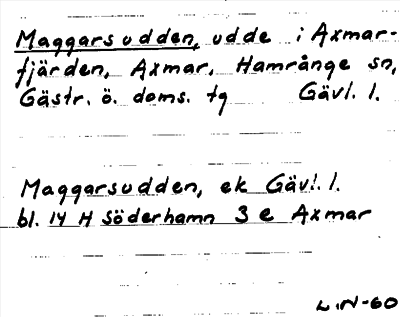 Maggarsudden, udde i Axmar-
fjärden, Axmar, Hamrånge sn,
Gästr. ö. doms. tg Gävl. l.
Maggarsudden, ek Gävl. l.
bl. 14 H Söderhamn 3 e Axmar
L.N-60